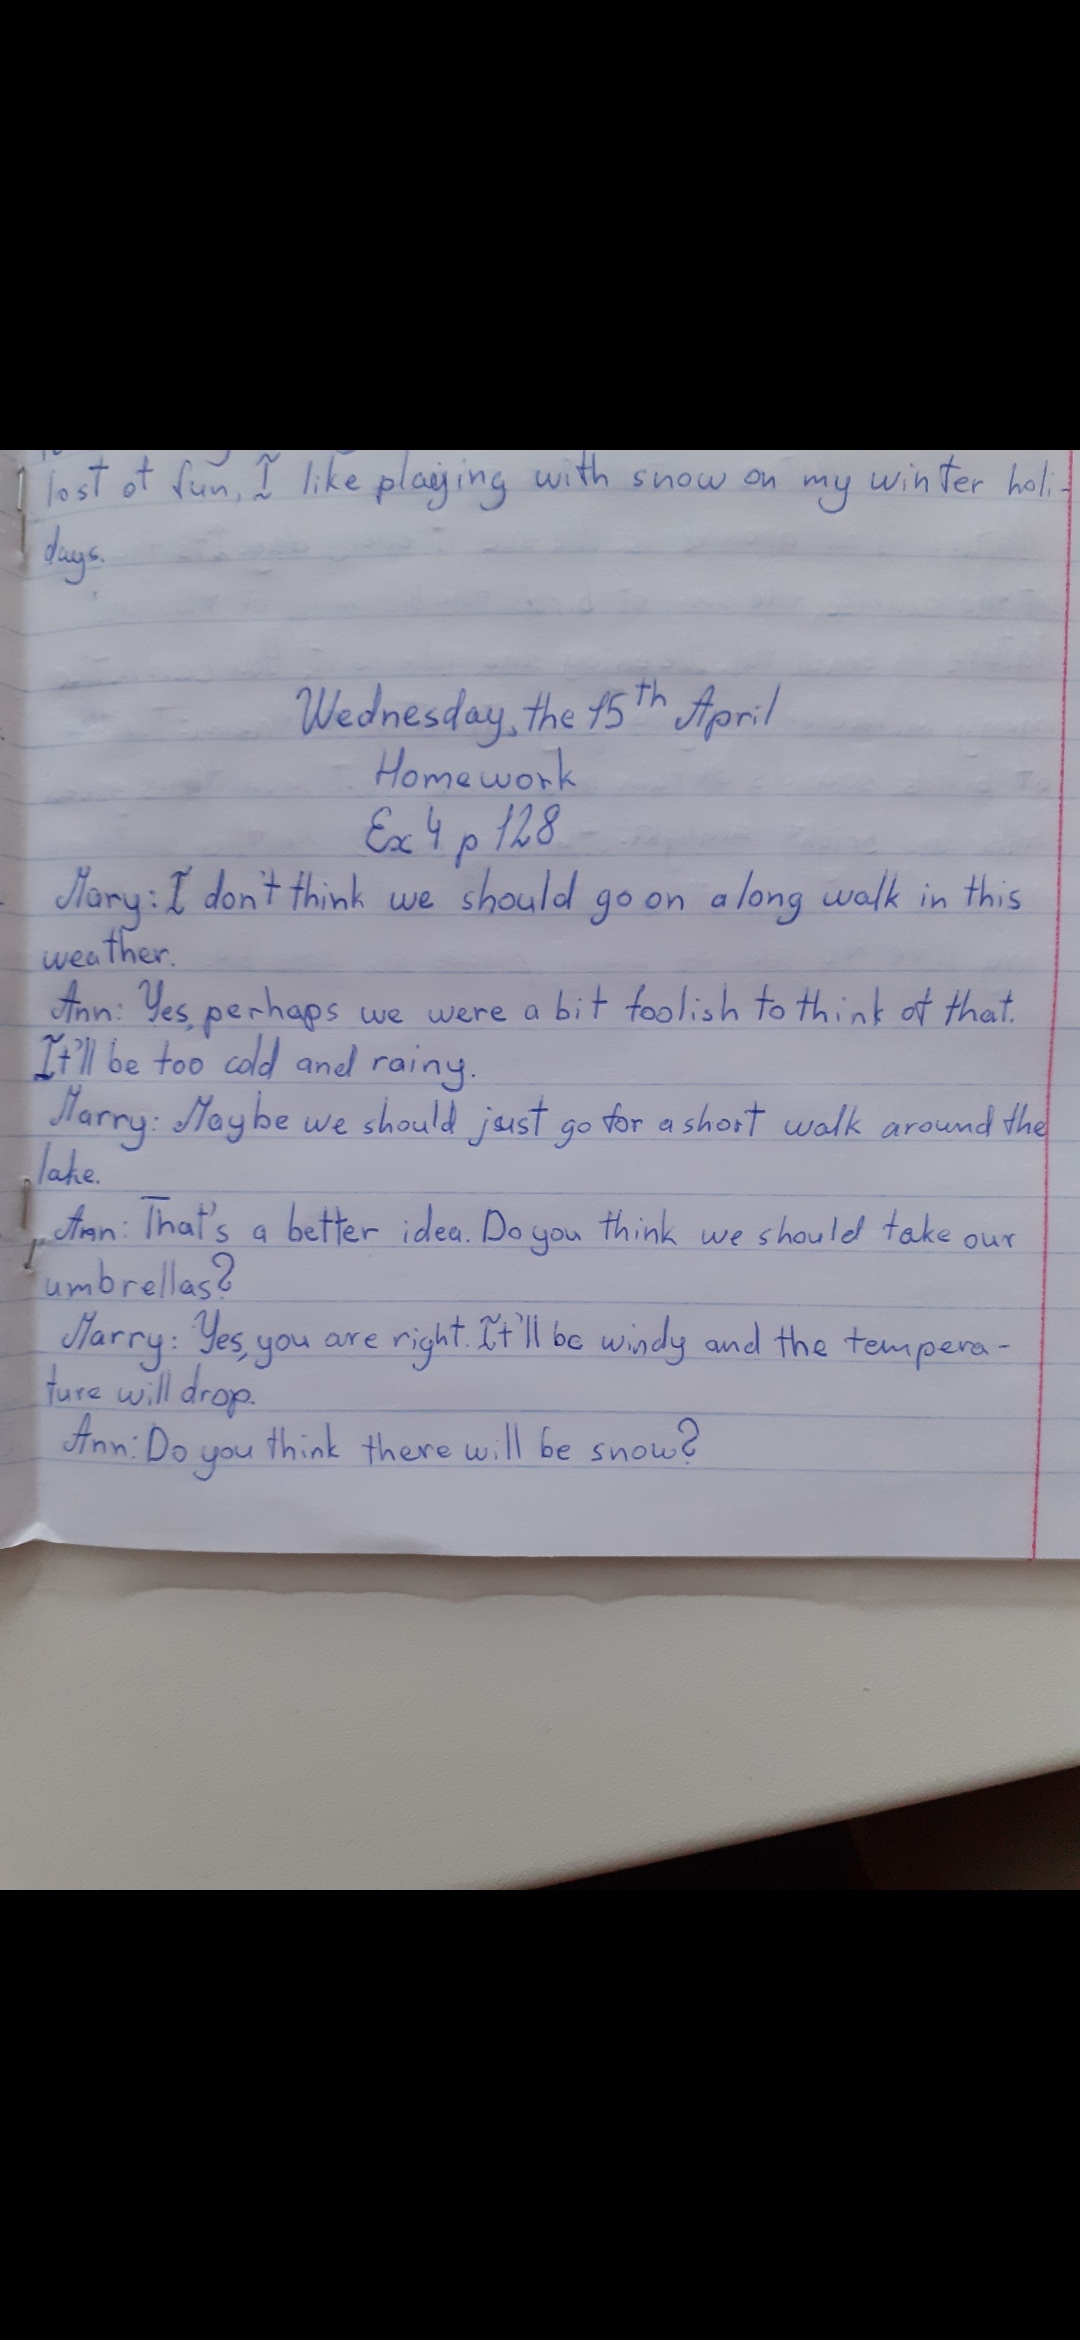 lost of fun, I like playing with snow on my winter holi-
days.
Wednesday, the 15th April
Homework
Ex 4 p 128
Mary: I don't think we should go on a long walk in this
weather.
Ann: Yes, perhaps we were a bit foolish to think of that.
It'll be too cold and rainy.
Marry: Maybe we should just go for a short walk around the
lake.
Ann: That's a better idea. Do you think we should take our
umbrellas?
Marry: Yes, you are right. It'll be windy and the tempera-
ture will drop.
Ann: Do you think there will be snow?